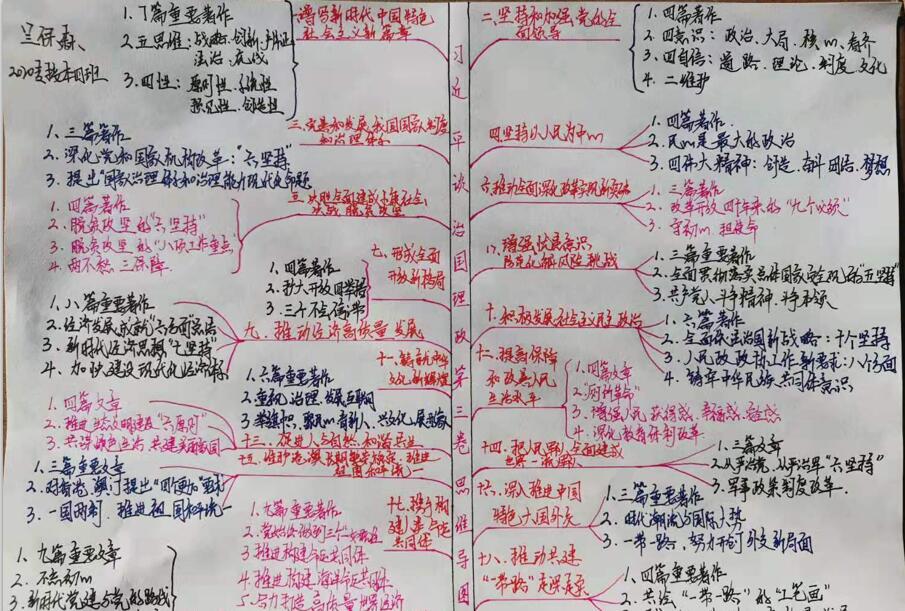 2020
1.丁篇重要著作
2.五思维:战略、创新、辩证
法治、底线
3.四性:原则性、系统性
预见性、创造性
一.谱写新时代中国特色
社会主义新篇章
二.坚持和加强党的全
面领导
1.四篇著作
2.四意识:政治、大局、核心、看齐
3.四自信:道路、理论、制度、文化
4.二维护
习近平谈治国理政第三卷思维导图
三.完善和发展我国国家制度
和治理体系
1.三篇著作
2.深化党和国家机构改革:"六坚持"
3.提出"国家治理体系和治理能力现代化"命题
四.坚持以人民为中心
1.四篇著作
2.民心是最大的政治
3.四伟大精神:创造、奋斗、团结、梦想
五.决胜全面建成小康社会,
决战脱贫攻坚
1.四篇著作
2.脱贫攻坚的"六坚持"
3.脱贫攻坚的"八项工作重点"
4.两不愁三保障
六.推动全面深化改革实现新突破
1.三篇著作
2.改革开放四十年来的"九个必须"
3.守初心、担使命
七.形成全面
开放新格局
1.四篇著作
2.扩大开放四举措
3.三个不会停滞
八.增强忧患意识
防范化解风险挑战
1.三篇重要著作
2.全面贯彻落实总体国家安全观的"五坚持"
3.共产党人斗争精神、斗争本领
九.推动经济高质量发展
1.八篇重要著作
3.新时代经济思想"七坚持"
4.加快建设现代化经济体系
十.积极发展社会主义民主政治
1.六篇著作
2.全面依法治国新战略:十个坚持
3.人民政协工作新要求:八个方面
4.铸牢中华民族共同体意识
十一.铸就中华
文化新辉煌
1.六篇重要著作
2.重视、治理、发展互联网
3.举旗帜、聚民心、育新人、兴文化、展形象
十二.提高保障
和改善人民
生活水平
1.四篇文章
2."厕所革命"
3.增强人民获得感、幸福感、安全感
4.深化教育体制改革
十三.促进人与自然和谐共生
1.四篇文章
2.推进生态文明建设"六原则"
3.共谋绿色生活 共建美丽家园
十四.把人民军队全面建成
世界一流军队
1.三篇文章
2.从严治党、从严治军"六坚持"
3.军事政策制度改革
十五.维护港澳长期繁荣稳定、推进
祖国和平统一
1.三篇重要文章
2.对香港、澳门提出"四个更加"要求
3.一国两制,推进祖国和平统一
十六.深入推进中国
特色大国外交
1.三篇重要著作
2.时代潮流与国际大势
3.一带一路,努力开创外交新局面
十七.携手构
建人类命运
共同体
1.九篇重要著作
3.推进构建人类命运共同体
4.推进构建海洋命运共同体
5.合力打造高质量世界经济
十八.推动共建
"一带一路"走深走实
1.四篇重要著作
2.共绘"一带一路"的"工笔画"
1.九篇重要文章
2.不忘初心
3.新时代党建与党的路线